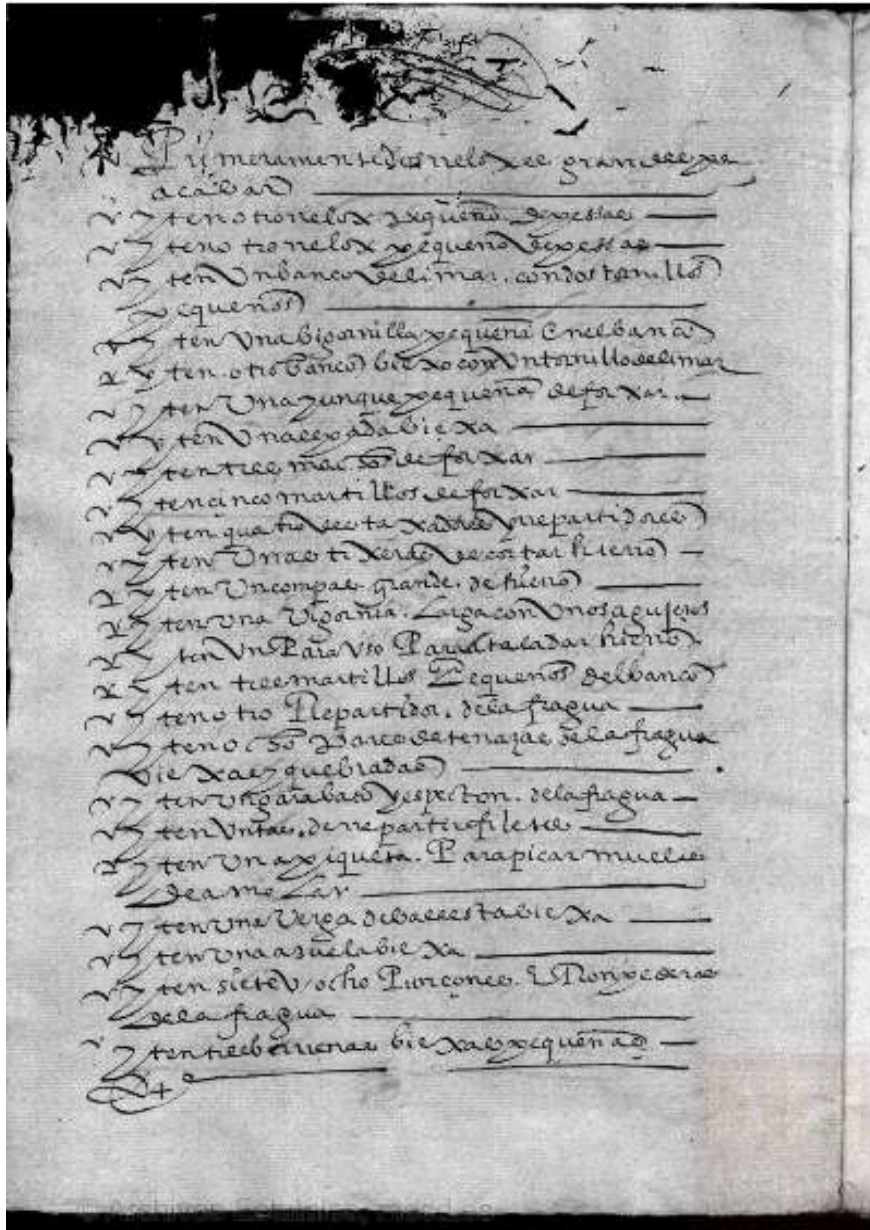 Primeramente dos rrelojes grandes por
acabar
yten otro rrelox pequeño de pessas
yten otro rrelox pequeño de pessas
yten Un banco de limar. con dos tornillos
pequeños
yten Una bigornilla pequeña En el banco
yten otro banco biexo con Un tornillo de limar
yten Una yunque pequeña de forxar
yten Una espada biexa
yten tres de forxar
yten cinco martillos de forxar
yten quatro taxadores y rrepartidores
yten Unas tixeras de cortar hierro
yten Un compas grande. de hierro
yten Una Vigornia. Larga con Unos agujeros
yten Un Parauso Para taladar hierro
yten tres martillos Pequeños del banco
yten otro Repartidor. de la fragua
yten ocho Pares de tenazas de la fragua
biexas y quebradas
yten Un garabato y espeton. de la fragua
yten Un tas. de rrepartir filetes
yten Una piqueta. Para picar muelas
de amolar
yten Una Verga de ballesta biexa
yten Una azuela biexa
yten siete U ocho Punçones. E Rompederas
de la fragua
yten tres barrenas biexas pequeñas